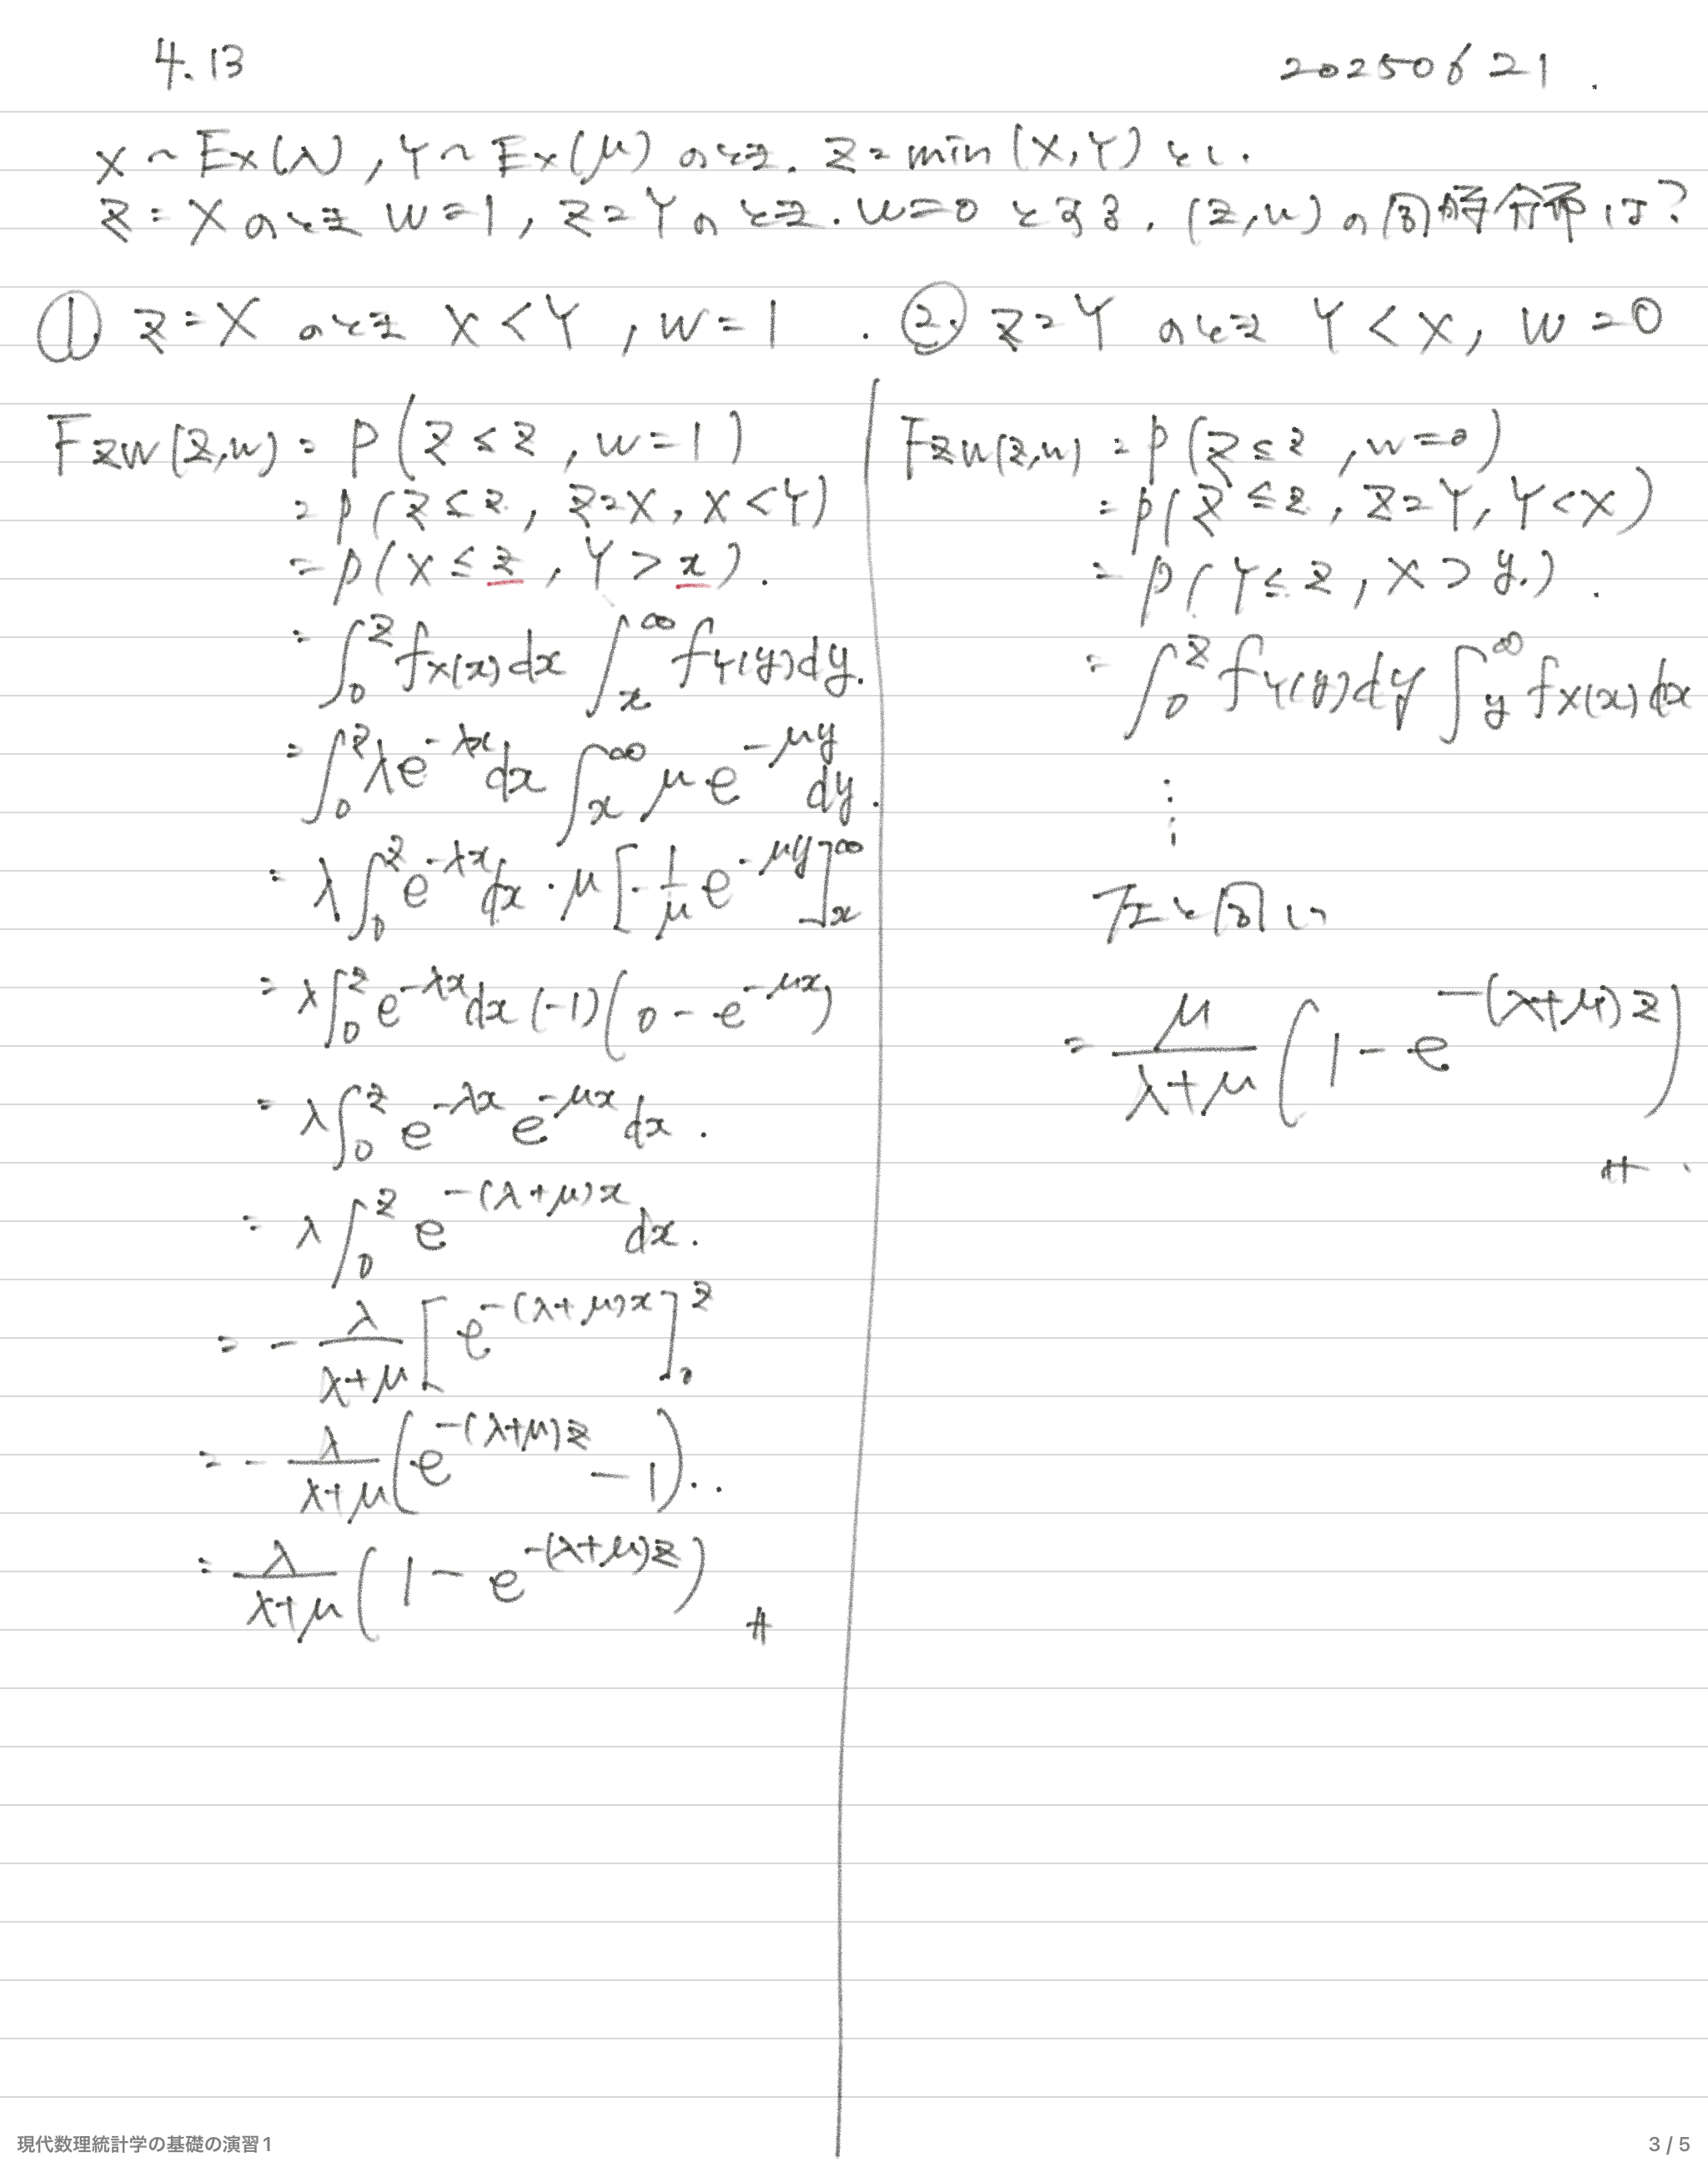 4.13
20250621.
X ~ Ex(λ), Y ~ Ex(μ) のとき. Z = min(X, Y) とし.
Z = X のとき W = 1, Z = Y のとき. W = 0 とする. (Z, W) の同時分布は?
① Z = X のとき X < Y, W = 1.
F_{ZW}(z,w) = P(Z ≤ z, W = 1)
= P(Z ≤ z, Z = X, X < Y)
= P(X ≤ z, Y > x).
= ∫_0^z f_X(x) dx ∫_x^∞ f_Y(y) dy.
= ∫_0^z λe^{-λx} dx ∫_x^∞ μe^{-μy} dy.
= λ∫_0^z e^{-λx} dx · μ[-\frac{1}{μ} e^{-μy}]_x^∞
= λ∫_0^z e^{-λx} dx (-1)(0 - e^{-μx})
= λ∫_0^z e^{-λx} e^{-μx} dx.
= λ∫_0^z e^{-(λ+μ)x} dx.
= -\frac{λ}{λ+μ}[e^{-(λ+μ)x}]_0^z
= -\frac{λ}{λ+μ}(e^{-(λ+μ)z} - 1)..
= \frac{λ}{λ+μ}(1 - e^{-(λ+μ)z})
② Z = Y のとき Y < X, W = 0
F_{ZW}(z,w) = P(Z ≤ z, W = 0)
= P(Z ≤ z, Z = Y, Y < X)
= P(Y ≤ z, X > y.).
= ∫_0^z f_Y(y) dy ∫_y^∞ f_X(x) dx
⋮
左と同じ
= \frac{μ}{λ+μ}(1 - e^{-(λ+μ)z})
現代数理統計学の基礎の演習1
3 / 5